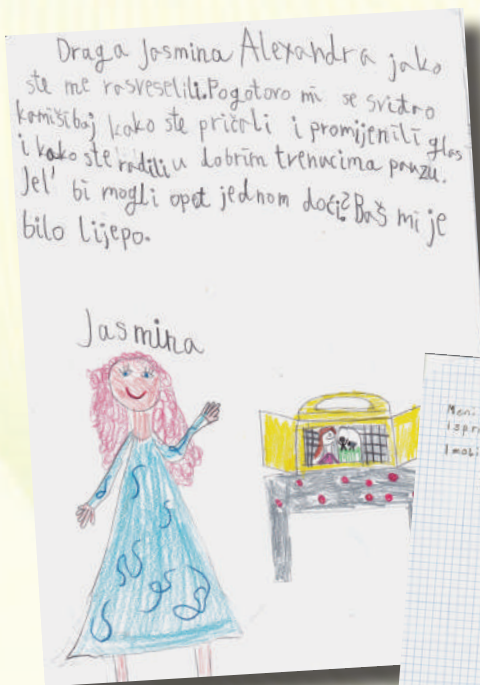 Draga Jasmina Alexandra jako
ste me rasveselili. Pogotovo mi se svidro
kamišibaj kako ste pričali i promijenili glas
i kako ste radili u dobrim trenucima pauzu.
Jel' bi mogli opet jednom doći? Baš mi je
bilo lijepo.
Jasmina
Meni